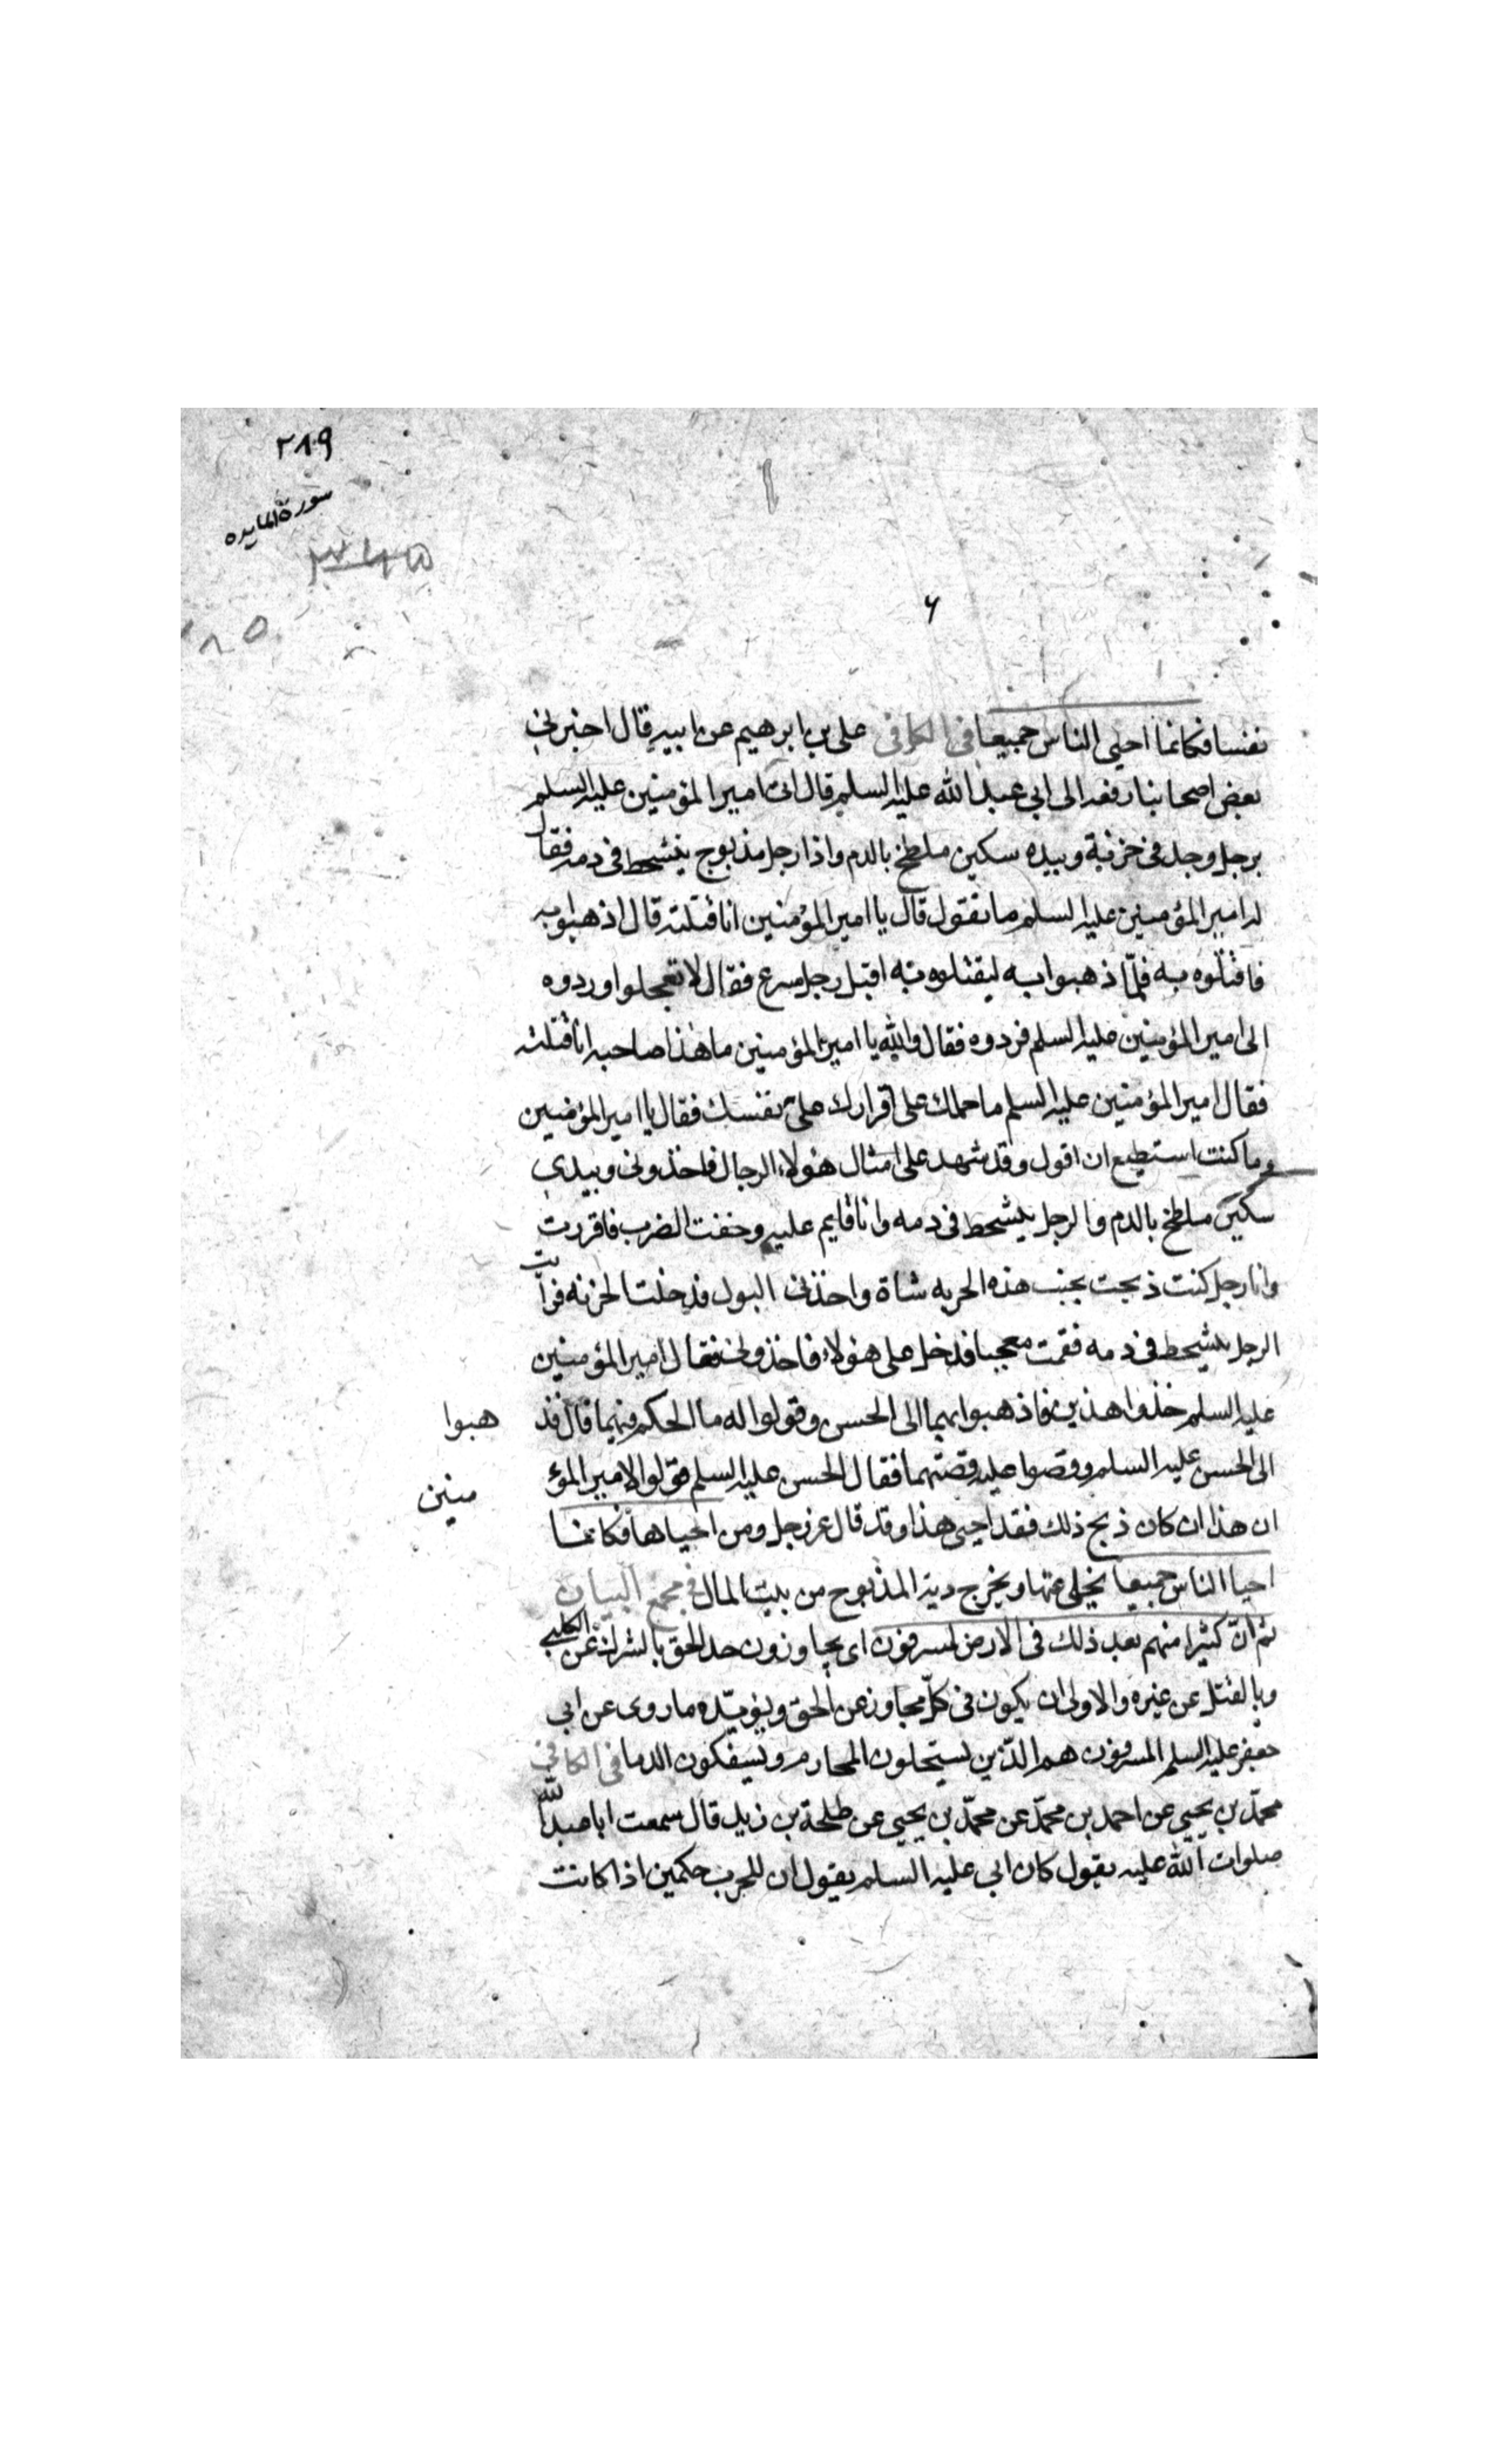 ٢٨٩
سورة المايده
٣٤٥
٦
نفسا فكانما احيى الناس جميعا فى الكافى على بن ابرهيم عن ابيه قال اخبرنى
بعض اصحابنا رفعه الى ابى عبد الله عليه السلم قال اتى امير المؤمنين عليه السلم
برجل وجد فى خربة وبيده سكين ملطخ بالدم واذا رجل مذبوح يتشحط فى دمه فقال
له امير المؤمنين عليه السلم ما تقول قال يا امير المؤمنين انا قتلته قال اذهبوا به
فاقتلوه به فلمّا ذهبوا به ليقتلوه به اقبل رجل مسرع فقال لا تعجلوا وردوه
الى امير المؤمنين عليه السلم فردوه فقال والله يا امير المؤمنين ما هذا صاحبه انا قتلته
فقال امير المؤمنين عليه السلم ما حملك على اقرارك على نفسك فقال يا امير المؤمنين
وما كنت استطيع ان اقول وقد شهد على امثال هؤلاء الرجال فاخذونى وبيدى
سكين ملطخ بالدم والرجل يتشحط فى دمه وانا قايم عليه وخفت الضرب فاقررت
وانا رجل كنت ذبحت بجنب هذه الخربه شاة واخذنى البول فدخلت الخربه فرأيت
الرجل يتشحط فى دمه فقمت معجبا فدخل على هؤلاء فاخذونى فقال امير المؤمنين
عليه السلم خذوا هذين فاذهبوا بهما الى الحسن وقولوا له ما الحكم فيهما قال فذ هبوا
الى الحسن عليه السلم وقصوا عليه قصتهما فقال الحسن عليه السلم قولوا لامير المؤ منين
ان هذا ان كان ذبح ذلك فقد احيى هذا وقد قال عز وجل ومن احياها فكانما
احيا الناس جميعا يخلى عنها ويخرج دية المذبوح من بيت المال فى مجمع البيان
ثم انّ كثيرا منهم بعد ذلك فى الارض لمسرفون اى يجاوزون حد الحق بالشرك عن الكلبى
وبالقتل عن غيره والاولى ان يكون فى كلّ مجاوز عن الحق ويؤيّده ما روى عن ابى
جعفر عليه السلم المسرفون هم الّذين يستحلون المحارم ويسفكون الدما فى الكافى
محمّد بن يحيى عن احمد بن محمّد عن محمّد بن يحيى عن طلحة بن زيد قال سمعت ابا عبد الله
صلوات الله عليه يقول كان ابى عليه السلم يقول ان للحرب حكمين اذا كانت